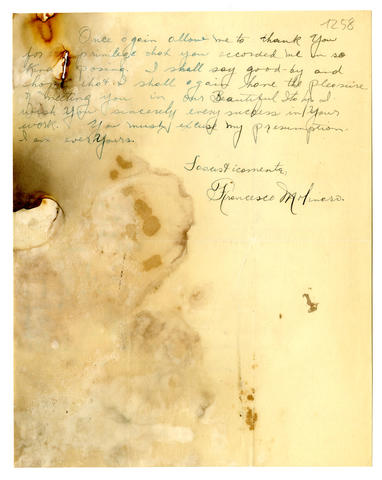 1258
Once again allow me to thank You
for privilege that you accorded me in so
kind posing. I shall say good-by and
hope that I shall again have the pleasure
meeting You in our Beautiful Italy. I
wish You sincerely every success in Your
work. You must excuse my presumption.
I am ever Yours.
Francesco Molinaro.